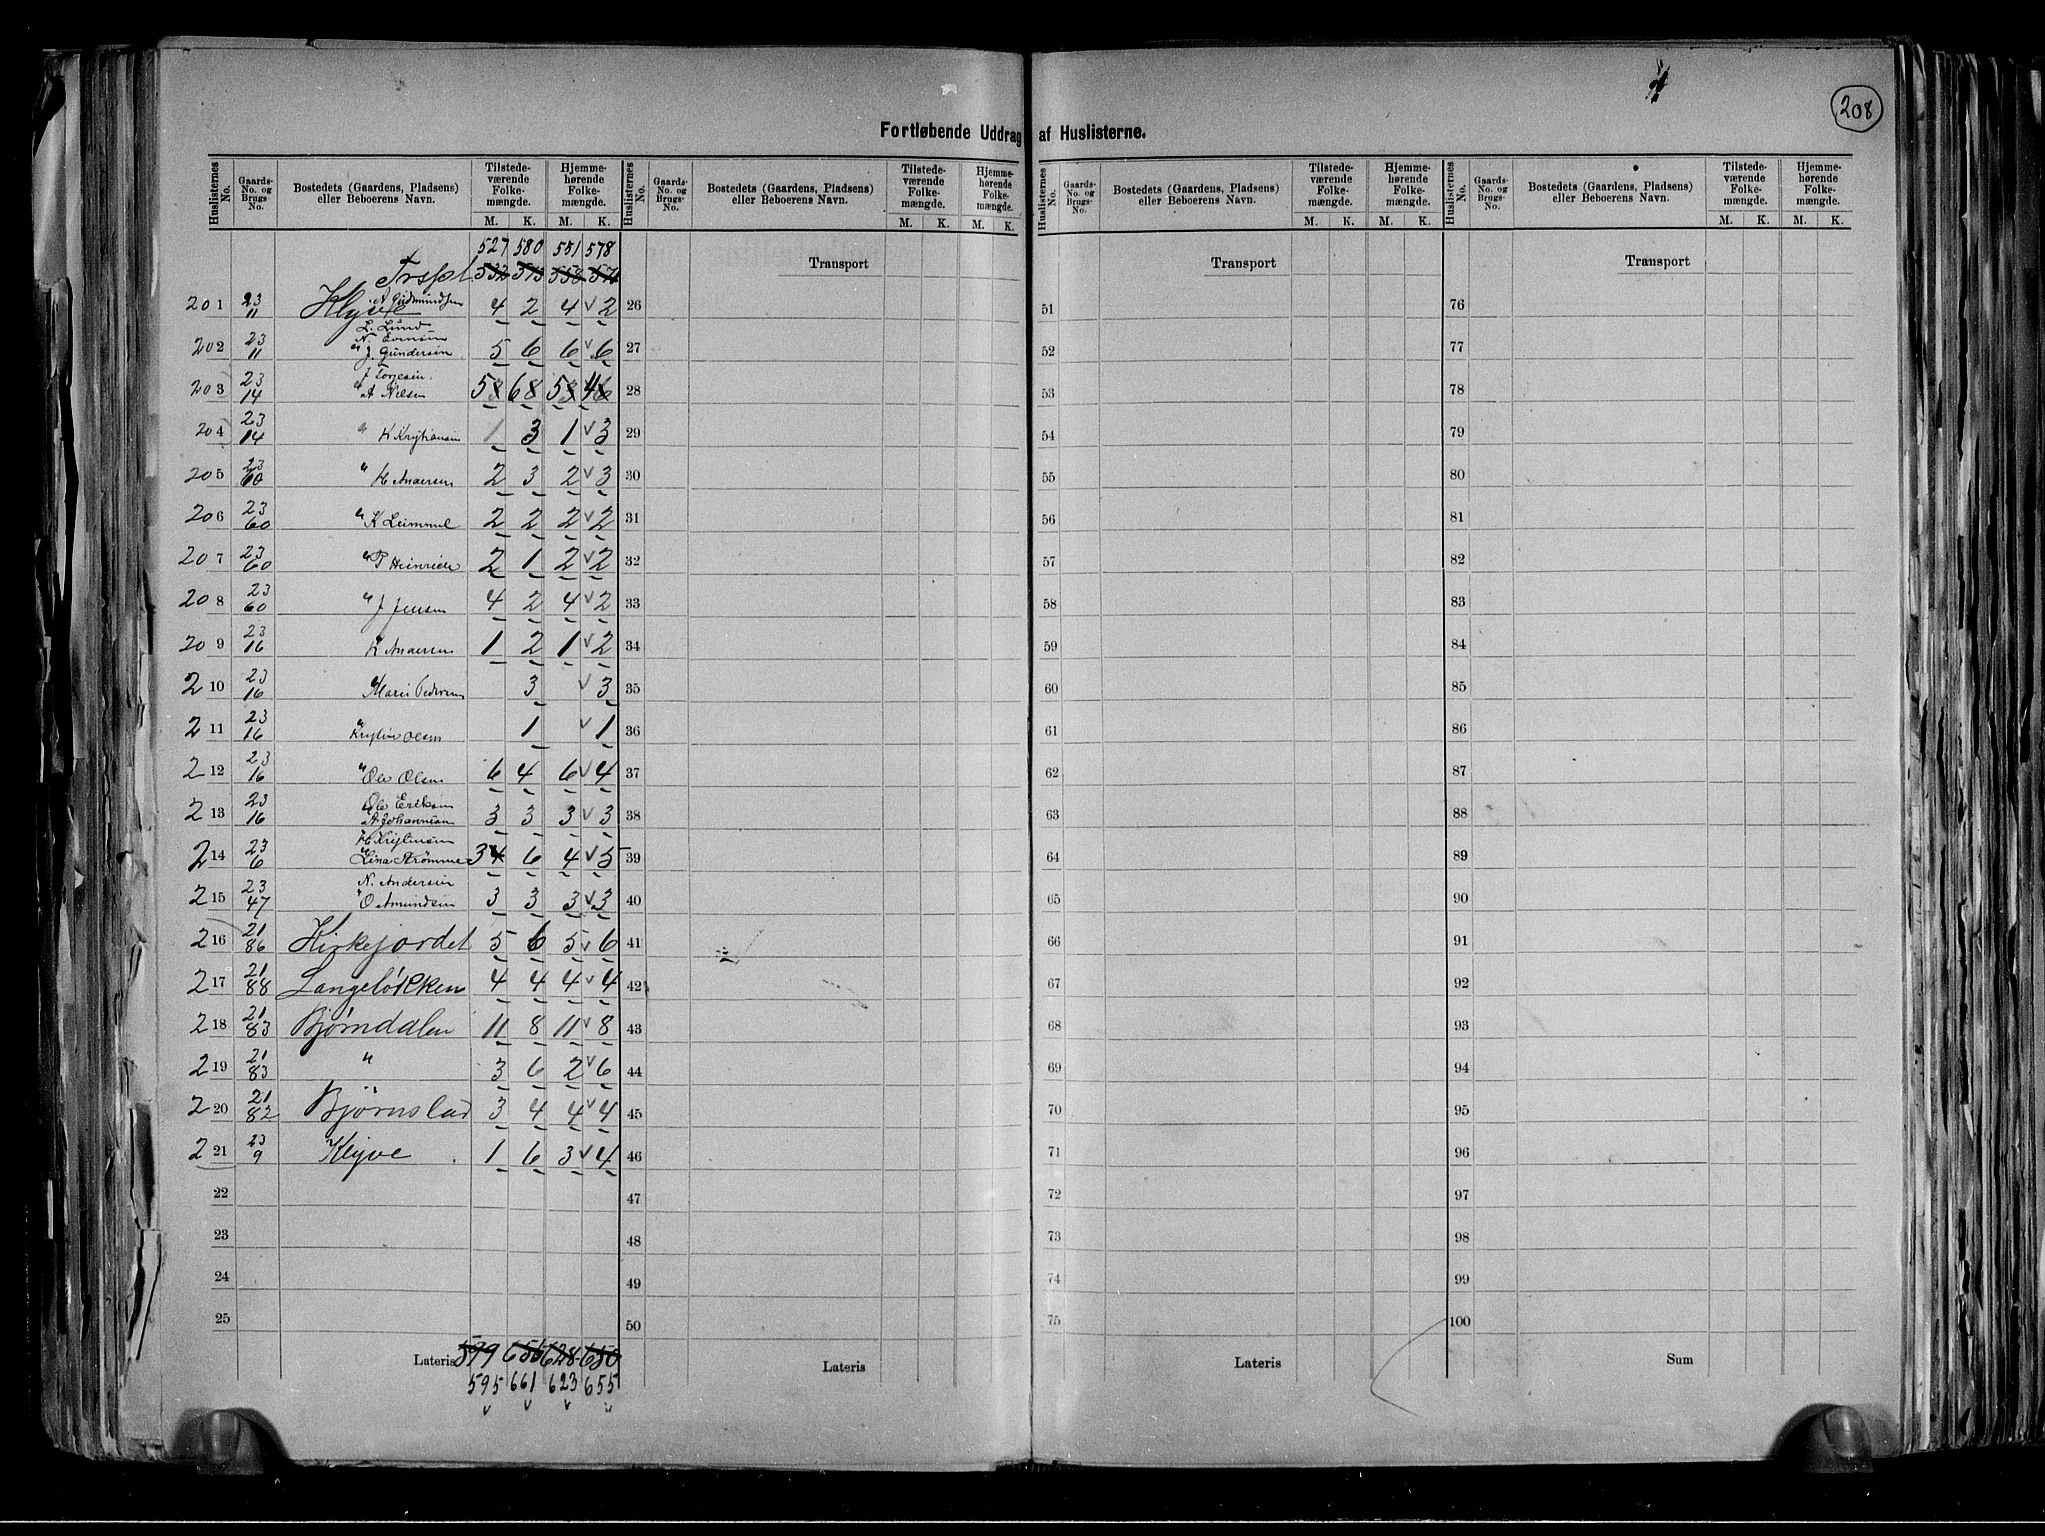 208
Fortløbende Uddrag af Huslisterne.
Huslisternes No. Gaards-No. og Brugs-No. Bostedets (Gaardens, Pladsens) eller Beboerens Navn. Tilstedeværende Folkemængde. M. K. Hjemmehørende Folkemængde. M. K.
527 580 551 578
Trspt
201 23/11 Klyve A Gudmundsen 4 2 4 v 2
L. Lund
N. Evensen
202 23/11 " J. Gundersen 5 6 6 v 6
J Torjesen
203 23/14 " A Nilsen 5 6 5 4
204 23/14 " K Krystiansen 1 3 1 v 3
205 23/60 " H Andersen 2 3 2 v 3
206 23/60 " K Lummel 2 2 2 v 2
207 23/60 " P Heinrich 2 1 2 v 2
208 23/60 " J Jensen 4 2 4 v 2
209 23/16 " K Andersen 1 2 1 v 2
210 23/16 " Marie Pedersen 3 v 3
211 23/16 " Krystine Olsen 1 v 1
212 23/16 " Ole Olsen 6 4 6 v 4
Ole Eriksen
213 23/16 " A Johannesen 3 3 3 v 3
214 23/6 " Lina Strømme 3 6 4 v 5
N. Andersen
215 23/47 " O Amundsen 3 3 3 v 3
216 21/86 Kirkejordet 5 6 5 v 6
217 21/88 Langeløkken 4 4 4 v 4
218 21/83 Bjørndalen 11 8 11 v 8
219 21/83 " 3 6 2 v 6
220 21/82 Bjørnstad 3 4 4 v 4
221 23/9 Klyve 1 6 3 v 4
22
23
24
25
Lateris 599 656 628 650
595 661 623 655
v v v v
Huslisternes No. Gaards-No. og Brugs-No. Bostedets (Gaardens, Pladsens) eller Beboerens Navn. Tilstedeværende Folkemængde. M. K. Hjemmehørende Folkemængde. M. K.
Transport
26
27
28
29
30
31
32
33
34
35
36
37
38
39
40
41
42
43
44
45
46
47
48
49
50
Lateris
Huslisternes No. Gaards-No. og Brugs-No. Bostedets (Gaardens, Pladsens) eller Beboerens Navn. Tilstedeværende Folkemængde. M. K. Hjemmehørende Folkemængde. M. K.
Transport
51
52
53
54
55
56
57
58
59
60
61
62
63
64
65
66
67
68
69
70
71
72
73
74
75
Lateris
Huslisternes No. Gaards-No. og Brugs-No. Bostedets (Gaardens, Pladsens) eller Beboerens Navn. Tilstedeværende Folkemængde. M. K. Hjemmehørende Folkemængde. M. K.
Transport
76
77
78
79
80
81
82
83
84
85
86
87
88
89
90
91
92
93
94
95
96
97
98
99
100
Sum